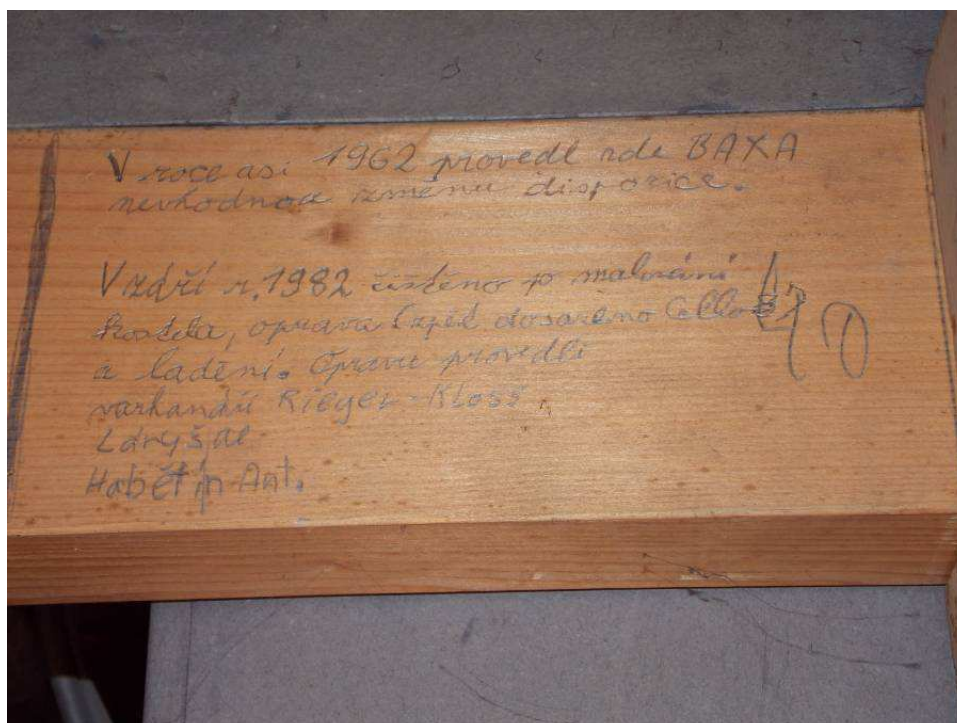 V roce asi 1962 provedl zde BAXA
nevhodnou změnu dispozice.
V září r. 1982 čištěno p malování
kostela, oprava zpět dosazeno Cello 8'
a ladění. Opravu provedli
varhanáři Rieger-Kloss.
Zdryšal
Habětín Ant.